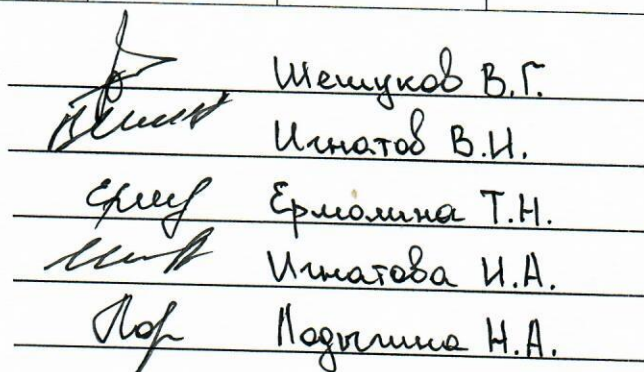 Шешуков В.Г.
Игнатов В.И.
Ермолина Т.Н.
Игнатова И.А.
Н.А.